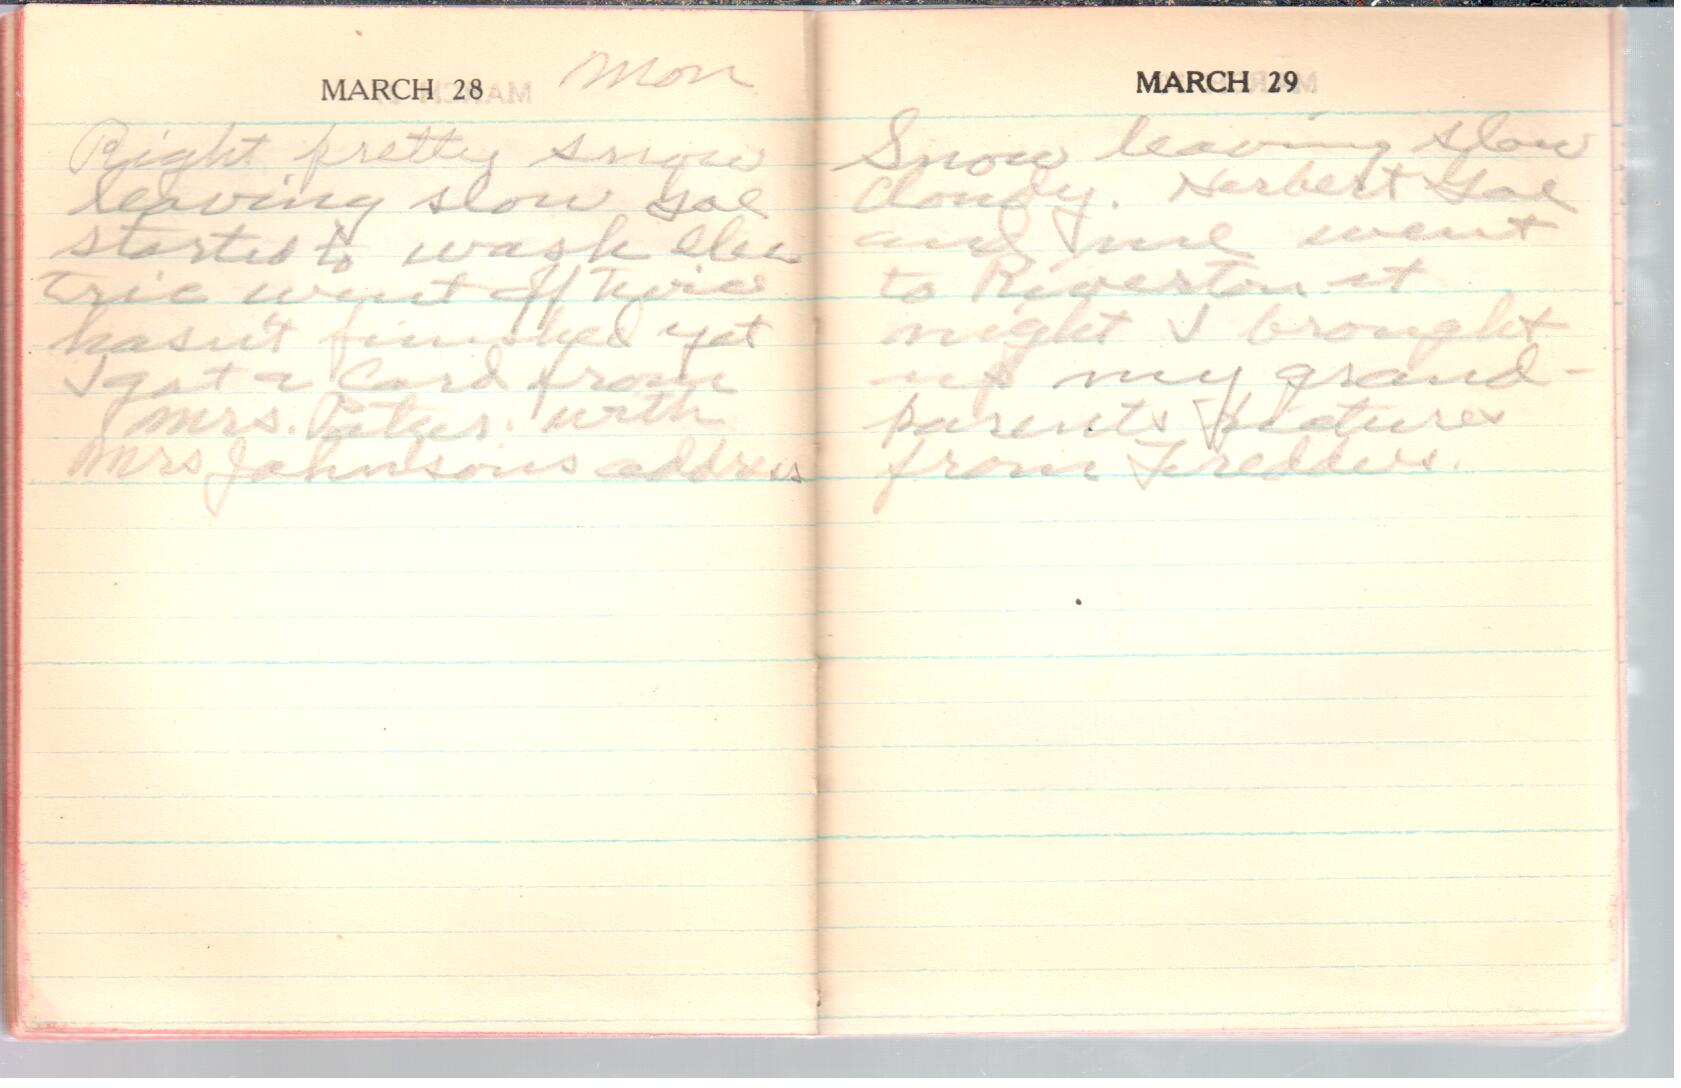 MARCH 28 Mon
Right pretty snow
leaving slow Gae
started to wash elec
tric went off twice
hasn't finished yet
I got a Card from
Mrs. with
Mrs Johnsons address
MARCH 29
Snow leaving slow
cloudy. Herbert Gae
and me went
to Riverton at
night I brought
up my grand-
parents pictures
from Freddies.